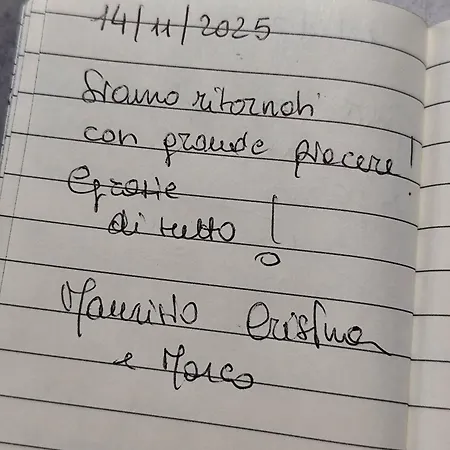 14/11/2025
Siamo ritornati
con grande piacere!
e grazie
di tutto!
Maurizio Cristina
e Marco